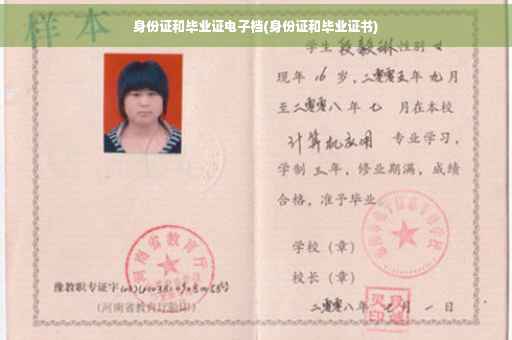 身份证和毕业证电子档(身份证和毕业证书)
样本
学生 段毅琳 性别 女
现年 16 岁，二零零五年 九 月
至二零零八年 七 月在本校
计算机应用 专业学习，
学制 三 年，修业期满，成绩
合格，准予毕业
学校（章）
校长（章）
二零零八年 七 月 一 日
河南省教育厅
豫教职专证字
(河南省教育厅验印)